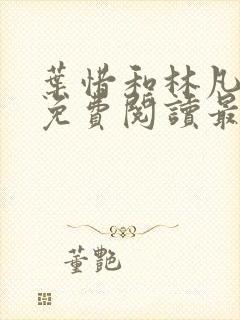 葉惜和林凡
免費閱讀最
董艷